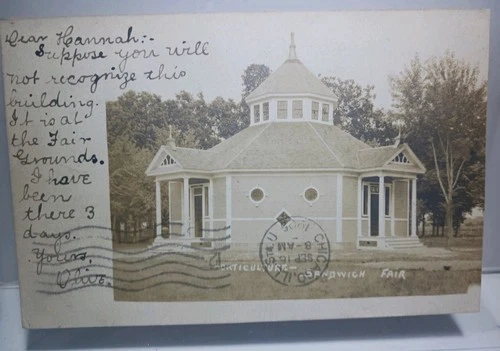 Dear Hannah:-
Suppose you will
not recognize this
building.
It is at
the Fair
Grounds.
I have
been
there 3
days.
Yours,
Olive.
CHICAGO, ILL.
SEP 16
8-AM
HORTICULTURE- SANDWICH FAIR